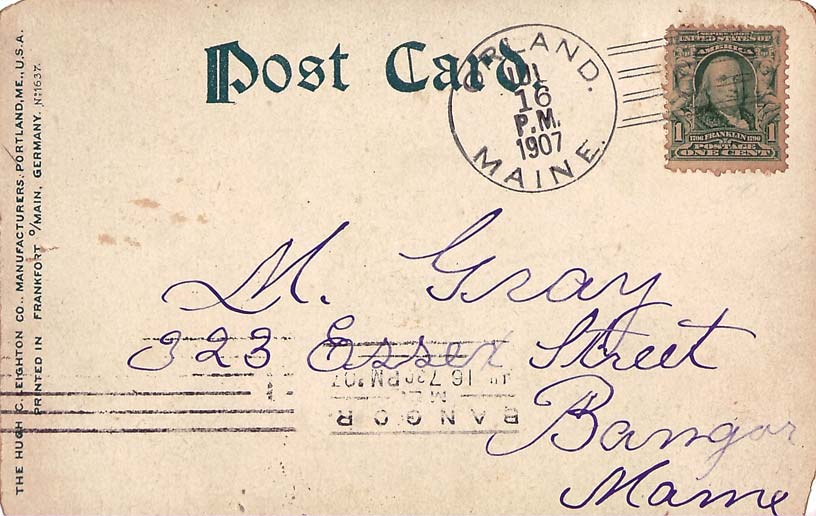 Post Card.
ORLAND.
JUL
16
P.M.
1907
MAINE.
SERIES 1902
UNITED STATES OF
AMERICA
1 1706 FRANKLIN 1790 1
POSTAGE
ONE CENT
M. Gray
323 Essex Street
Bangor
Maine
BANGOR
ME.
JUL 16 730PM '07
1
THE HUGH C. LEIGHTON CO., MANUFACTURERS, PORTLAND, ME., U.S.A.
PRINTED IN FRANKFORT O/MAIN, GERMANY. No 1637.